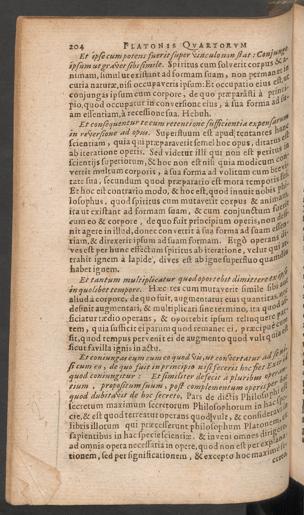 204 PLATONIS QVARTORVM
Et ipse cum potens fuerit super vinculo non stat: Conjunge
ipsum ut graver sibi simile. Spiritus cum solverit corpus & a-
nimam, simul ut existant ad formam suam, non permanent
curia naturæ, nisi occupaveris ipsum: Et occupatio eius est, ut
conjungas ipsum cum corpore, de quo præparasti à princi-
pio, quod occupatur in conversione eius, à sua forma ad su-
am essentiam, à recessione sua. Hebuh.
Et consequentur tecum retentione sufficientia expensarum
in reversione ad opus. Superfluum est apud tentances hanc
scientiam, quia qui præparaverit semel hoc opus, ditatus est
ab iteratione operis. Sed videtur illi qui non est peritus in
scientijs superiorum, & hoc non est nisi quia modicum con-
vertit multum corporis, à sua forma ad volitum cum brevi-
tate sua, secundum quod præparatio est mora temporis sui.
Et hoc est contrario modo, & hoc est, quod innuit nobis phi-
losophus, quod spiritus cum mutaverit corpus & animam
ita ut existant ad formam suam, & cum conjunctum fuerit
cum eo & corpore, de quo fuit principium operis, non desi-
nit agere in illud, donec convertit à sua forma ad suam essen-
tiam, & direxerit ipsum ad suam formam. Ergò operans di-
ves est per hunc effectum spiritus ab iteratione, velut qui at-
trahit ignem à lapide, dives est ab igne superfluo quamdiu
habet ignem.
Et tantum multiplicatur quod oportebit dimittere ex ipso
in quolibet tempore. Hæc res cum mutaverit simile sibi aut
aliud à corpore, de quo fuit, augmentatur eius quantitas, nec
desinit augmentari, & multiplicari sine termino, ita quod af-
ficiatur tædio operans, & oportebit ipsum relinquere par-
tem, quia sufficit ei parum quod remanet ei, præcipuè cum
sit, quod tempus pervenit ei de augmento quod vult quia est
sicut favilla ignis in actu.
Et coniungaeum cum eo quod vis, ut convertatur ad se ni-
si cum eo, de quo fuit in principio nisi feceris hoc fiet
quod coniungitur: Et similiter defecit à pluribus
tium, propositum suum, post complementum operis per hoc
quod dubitavit de hoc secreto. Pars de dictis Philosophi est
secretum maximum secretorum Philosophorum in hac spe-
cie, & est quod terreatur operans quodvult, & consideravi in
libris illorum qui præcesserunt philosophum Platonem, in
sapientibus in hac specie scientiæ, & inveni omnes dirigere,
ad omnia opera necessaria in opere, quod non est per explana-
tionem, sed per significationem, & excepto hoc maximo se-
creto